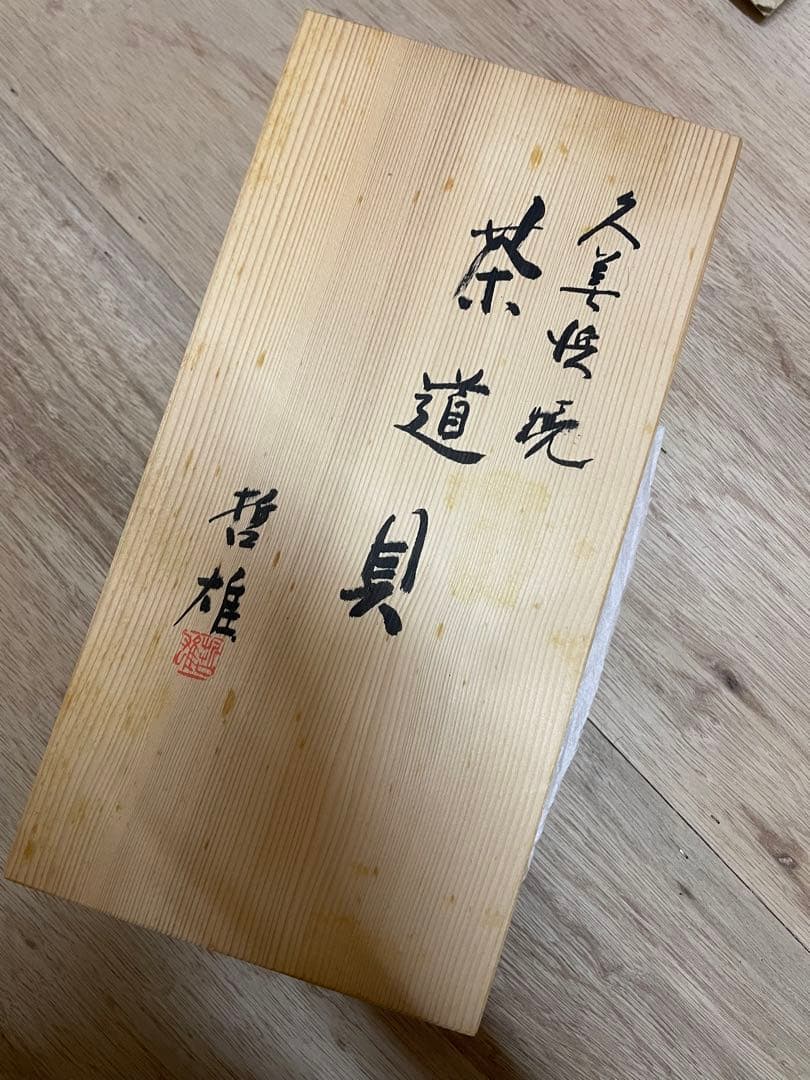 久美浜焼
茶道具
哲雄